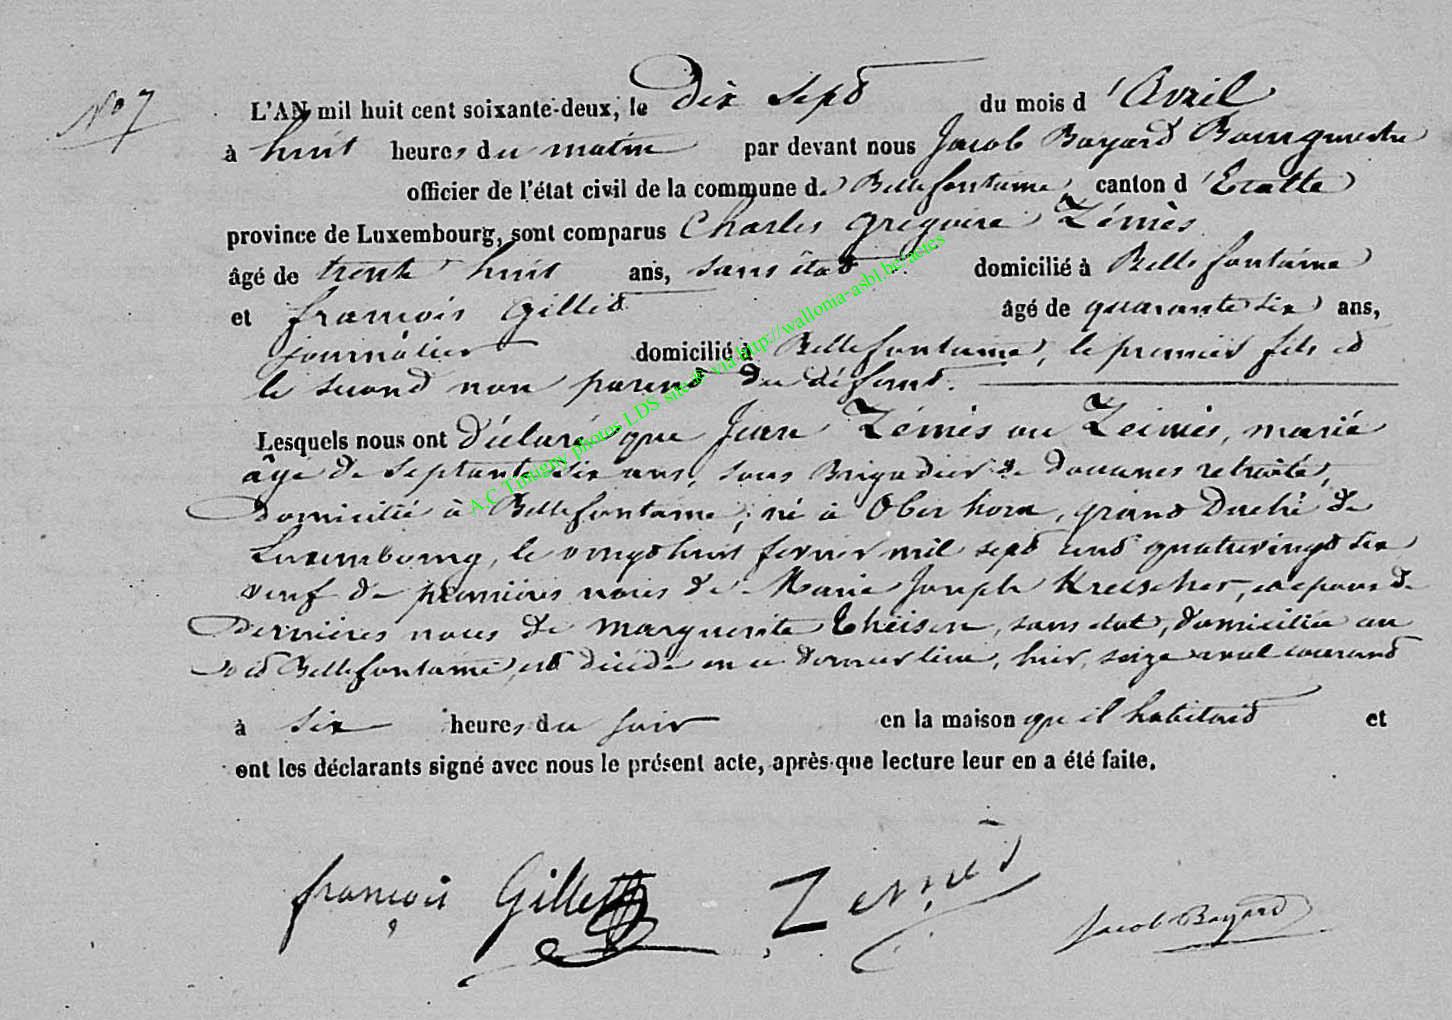 No 7
L'AN mil huit cent soixante-deux, le Dix Sept du mois d'Avril
à huit heures du matin par devant nous Jacob Bayard Bourgmestre
officier de l'état civil de la commune de Bellefontaine canton d'Etalle
province de Luxembourg, sont comparus Charles Grégoire Zémès
âgé de trente huit ans, sans état domicilié à Bellefontaine
et françois Gillet âgé de quarante six ans,
journalier domicilié à Bellefontaine, le premier fils et
le second non parent du défunt.
Lesquels nous ont Déclaré que Jean Zémès ou Zeimes, marié
âge de Septante six ans, sous Brigadier de douanes retraité,
domicilié à Bellefontaine, né à Oberkorn, grand Duché de
Luxembourg, le vingt huit fevrier mil sept cent quatre vingt six
veuf de premières noces de Marie Joseph Kreischer, et epoux de
Dernières noces de Marguerite Theisen, sans etat, domiciliée au
dit Bellefontaine, est décédé en ce dernier lieu, hier, seize avril courant
à six heures du soir en la maison qu'il habitait et
ont les déclarants signé avec nous le présent acte, après que lecture leur en a été faite.
françois Gillet Zemès Jacob Bayard
A.C Tintigny photos LDS sitede via http://wallonia-asbl.be/actes